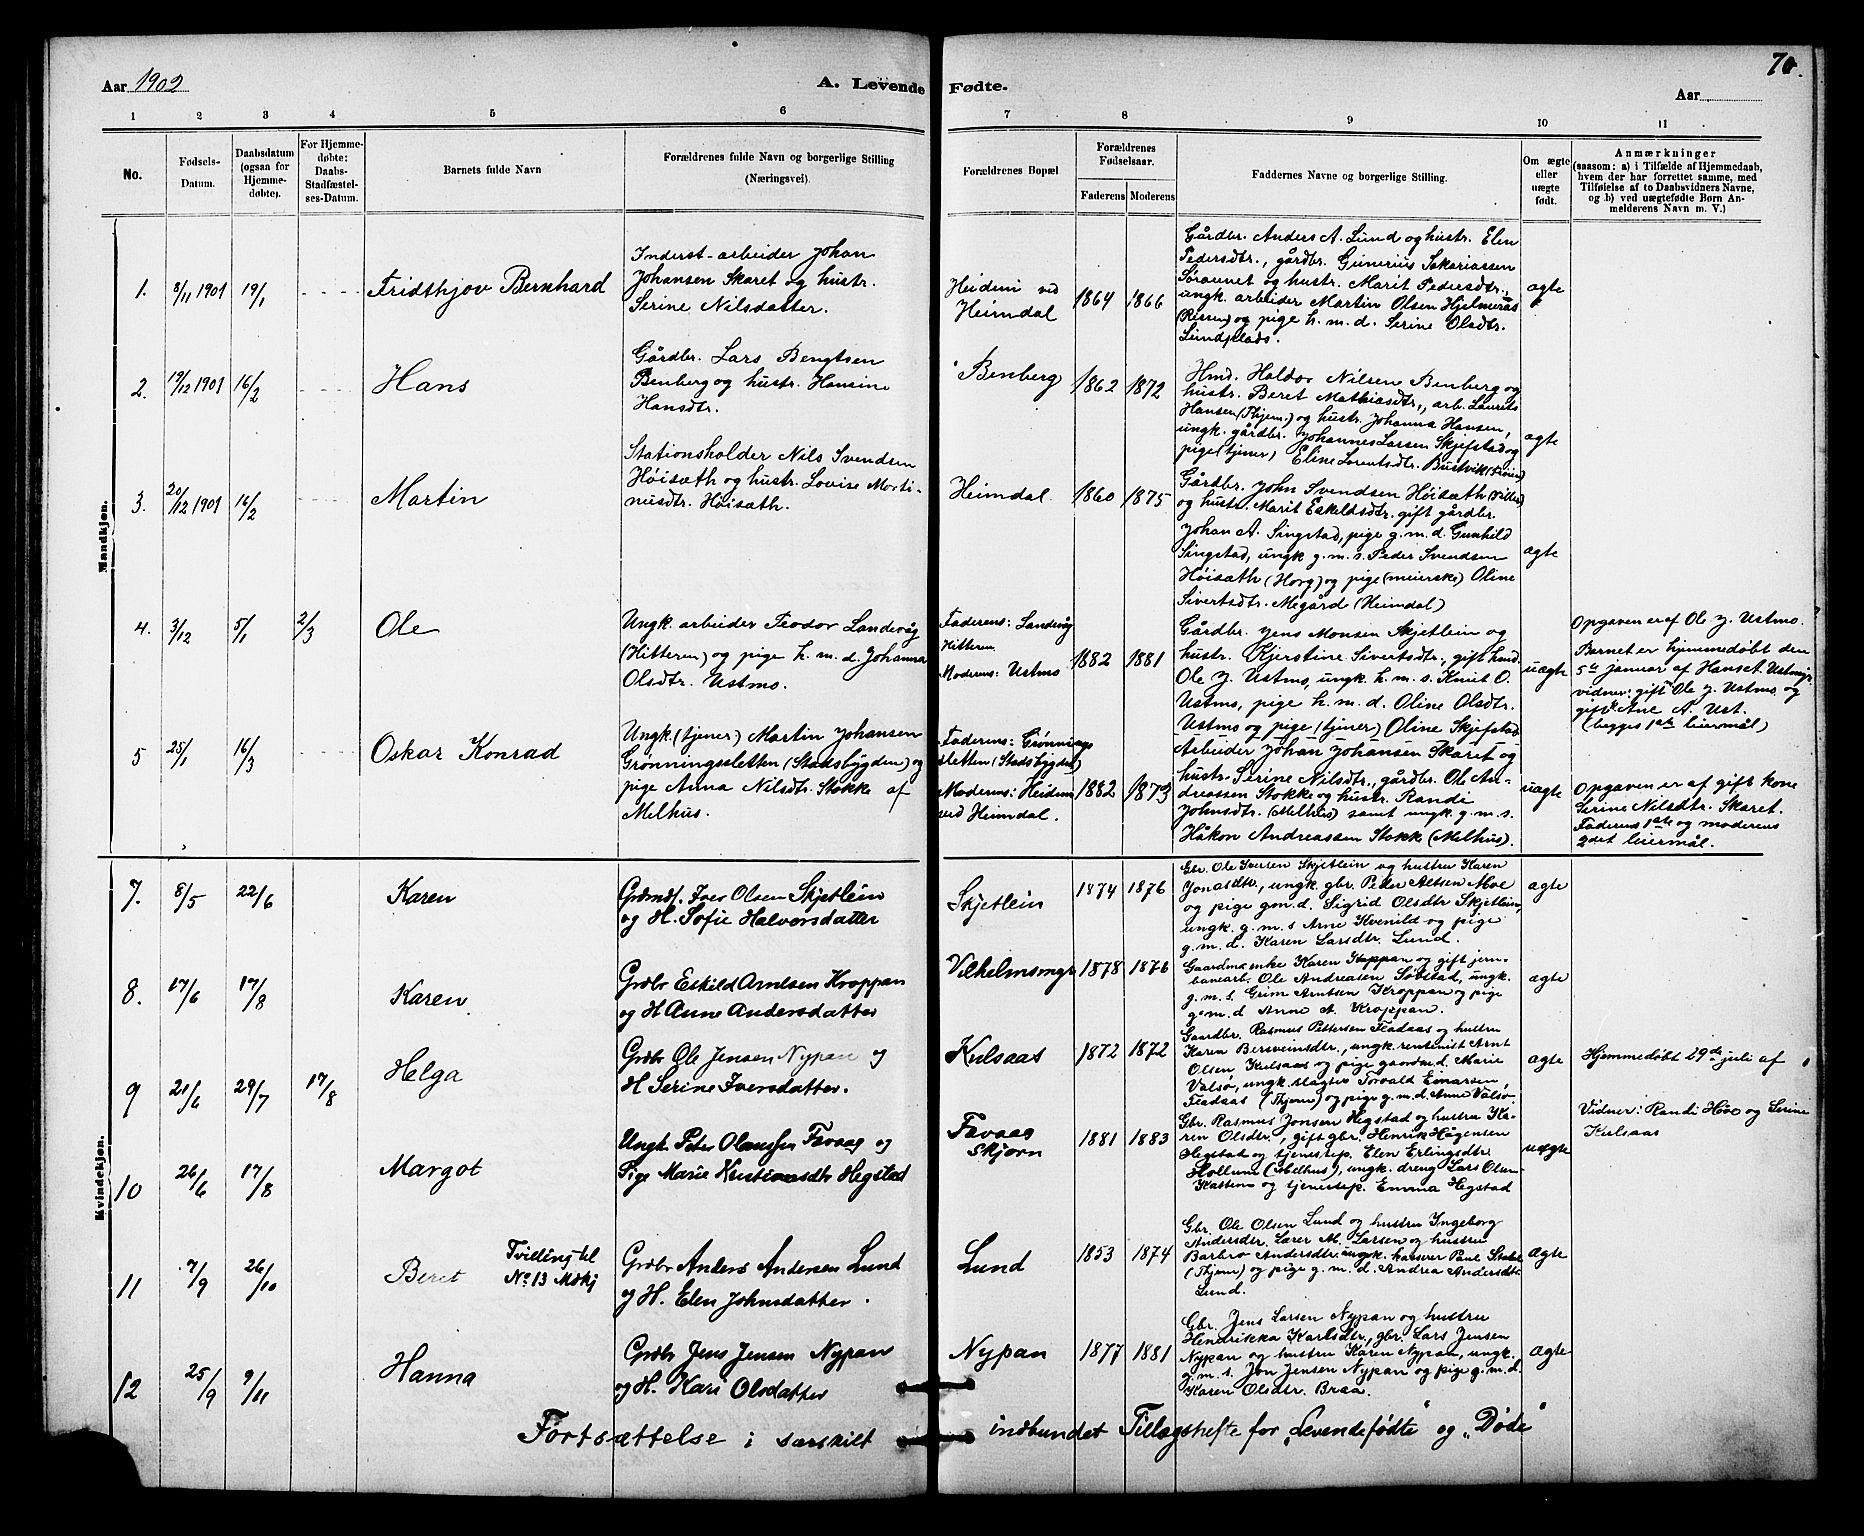 Aar 1902
A. Levende
Fødte.
Aar
70.
1 2 3 4 5 6 7 8 9 10 11
No.
Fødsels-
Datum.
Daabsdatum
(ogsaa for
Hjemme-
døbte).
For Hjemme-
døbte:
Daabs-
Stadfæstel-
ses-Datum.
Barnets fulde Navn
Forældrenes fulde Navn og borgerlige Stilling
(Næringsvei).
Forældrenes Bopæl
Forældrenes
Fødselsaar.
Faderens
Moderens
Faddernes Navne og borgerlige Stilling.
Om ægte
eller
uægte
født.
Anmærkninger
(saasom: a) i Tilfælde af Hjemmedaab,
hvem der har forrettet samme, med
Tilføielse af to Daabsvidners Navne,
og b) ved uægtefødte Børn An-
melderens Navn m. V.)
Mandkjøn.
1. 8/11 1901 19/1 Fridthjov Bernhard
Inderst-arbeider Johan
Johansen Skaret og hustr.
Serine Nilsdatter.
Heidemi ved
Heimdal
1864 1866
Gårdbr. Anders A. Lund og hustr. Elen
Pedersdtr., gårdbr. Gunerius Sakariassen
Søraunet og hustr. Marit Pedersdtr.,
ungk. arbeider Martin Olsen Hjelmeräs
(Rissen) og pige h. m. d. Serine Olsdtr.
Lundplads.
ægte
2. 19/12 1901 16/2 Hans
Gårdbr. Lars Bengtsen
Benberg og hustr. Hansine
Hansdtr.
Benberg
1862 1872
Hmd. Haldor Nilsen Benberg og
hustr. Beret Mathiasdtr., arb. Laurits
Hansen (Thjem.) og hustr. Johanna Hansen,
ungk. gårdbr. Johannes Larsen Skjefstad og
pige (tjener) Eline Lorentsdtr. Bustvik
ægte
3. 20/12 1901 16/2 Martin
Stationsholder Nils Svendsen
Høisæth og hustr. Lovise Marti-
nusdtr. Høisæth.
Heimdal.
1860 1875
Gårdbr. John Svendsen Høisæth
og hustr. Marit Eskeldsdtr. gift gårdbr.
Johan A. Singstad, pige g. m. d. Gunhild
Singstad, ungk g. m. s. Peder Svendsen
Høisæth (Horg) og pige (meierske) Oline
Sivertsdtr. Megård (Heimdal)
ægte
4. 3/12 5/1 2/3 Ole
Ungk. arbeider Teodor Landevåg
(Hitteren) og pige h. m. d. Johanna
Olsdtr. Ustmo.
Faderens: Landevåg
Hitteren.
Moderens: Ustmo
1882 1881
Gårdbr. Jens Monsen Skjetlein og
hustr. Kjerstine Sivertsdtr., gift hmd.
Ole J. Ustmo, ungk. h. m. s. Knut O.
Ustmo, pige h. m. d. Oline Olsdtr.
Ustmo og pige (tjener) Oline Skjefstad
uægte
Opgaven er af Ole J. Ustmo.
Barnet er hjemmedøbt den
5te januar af Hanset. Ustmyr.
vidner: gift Ole J. Ustmo og
gift Ane A. Ust.
(begges 1ste leiermål)
5 25/1 16/3 Oskar Konrad
Ungk. (tjener) Martin Johansen
Grønningsletten (Stadsbygden) og
pige Anna Nilsdtr. Stokke af
Melhus.
Faderens: Grønnings
sletten (Stadsbygden)
Moderens: Heidemi
ved Heimdal.
1882 1873
Arbeider Johan Johansen Skaret og
hustr. Serine Nilsdtr., gårdbr. Ole An-
dreassen Stokke og hustr. Randi
Johnsdtr. (Melhus) samt ungk. g. m. s.
Håkon Andreassen Stokk (Melhus).
uægte
Opgaven er af gift kone
Serine Nilsdtr. Skaret.
Faderens 1ste og moderens
2det leiermål.
Kvindekjøn.
7. 8/5 22/6 Karen
Grdmdf. Iver Olsen Skjetlein
og H. Sofie Halvorsdatter
Skjetlein
1874 1876
Gbr. Ole Iversen Skjetlein og hustru Karen
Jonasdtr., ungk. gbr. Peter Aeltsen Moe
og pige gm. d. Sigrid Olsdtr Skjetlein,
ungk. g. m. s Arne Kvenild og pige
g. m. d. Karen Larsdtr. Lund.
ægte
8. 17/6 17/8 Karen.
Grdbr Eskild Arntsen Kroppan
og H Anne Andersdatter
Vilhelmsmgr
1878 1876
Gaardmænke Karen Kroppan og gift jern-
banearb. Ole Andreasen Sørstad, ungk.
g. m. s. Grim Arntsen Kroppan og pige
g. m. d Anne A. Kroppan.
ægte
9 21/6 29/7 17/8 Helga
Grdbr Ole Jensen Nypan og
H Serine Iversdatter.
Kulsaas
1872 1872
Gaardbr. Rasmus Pettersen Fladaas og hustru
Karen Bersveinsdtr., ungk. rentenist Arnt
Olsen Kulsaas og pige gaardmd. Marie
Valsø, ungk. slagter Torvald Einarsen,
Fladaas (Thjem) og pige g. m. d. Anne Valsø.
ægte
Hjemmedøbt 29de juli af
Vidner: Randi Hoe og Serine
Kulsaas
10 26/6 17/8 Margot
Ungk. Peter Olaussen Favaag og
Pige Marie Kristiansdtr Hegstad
Favaag
Skjørn
1881 1883
Gbr. Rasmus Jonsen Hegstad og hustru Ka-
ren Olsdtr., gift gbr. Henrik Hågensen
Hegstad og tjenestep. Elen Erlingsdtr
Hollum (Melhus), ungk. dreng Lars Olsen
Kattem og tjenestep. Emma Hegstad
uægte
11 7/9 26/10 Beret
Tvilling til
No 13 Mdkj
Grdbr Anders Andersen Lund
og H. Elen Johnsdatter.
Lund
1853 1874
Gbr. Ole Olsen Lund og hustru Ingeborg
Andersdtr. Lærer M. Larsen og hustru
Barbro Andersdtr. ungk. kasserer Paul Stabel
(Thjem) og pige g. m. d. Andrea Andersdtr.
Lund.
ægte
12 25/9 9/11 Hanna
Grdbr Jens Jensen Nypan
og H. Kari Olsdatter
Nypan
1877 1881
Gbr. Jens Larsen Nypan og hustru
Hendrikka Karlsdtr., gbr. Lars Jensen
Nypan og hustru Karen Nypan, ungk.
g. m. s. Jon Jensen Nypan og pige g. m. d.
Karen Olsdtr. Braa.
ægte
Fortsættelse i særskilt indbundet Tillægshefte for „Levendefødte" og „Døde"